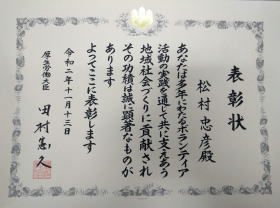 表彰状
松村忠彦殿
あなたは多年にわたるボランティア
活動の実践を通じて共に支えあう
地域社会づくりに貢献され
その功績は誠に顕著なものが
あります
よってここに表彰します
令和二年十一月十三日
厚生労働大臣
田村憲久